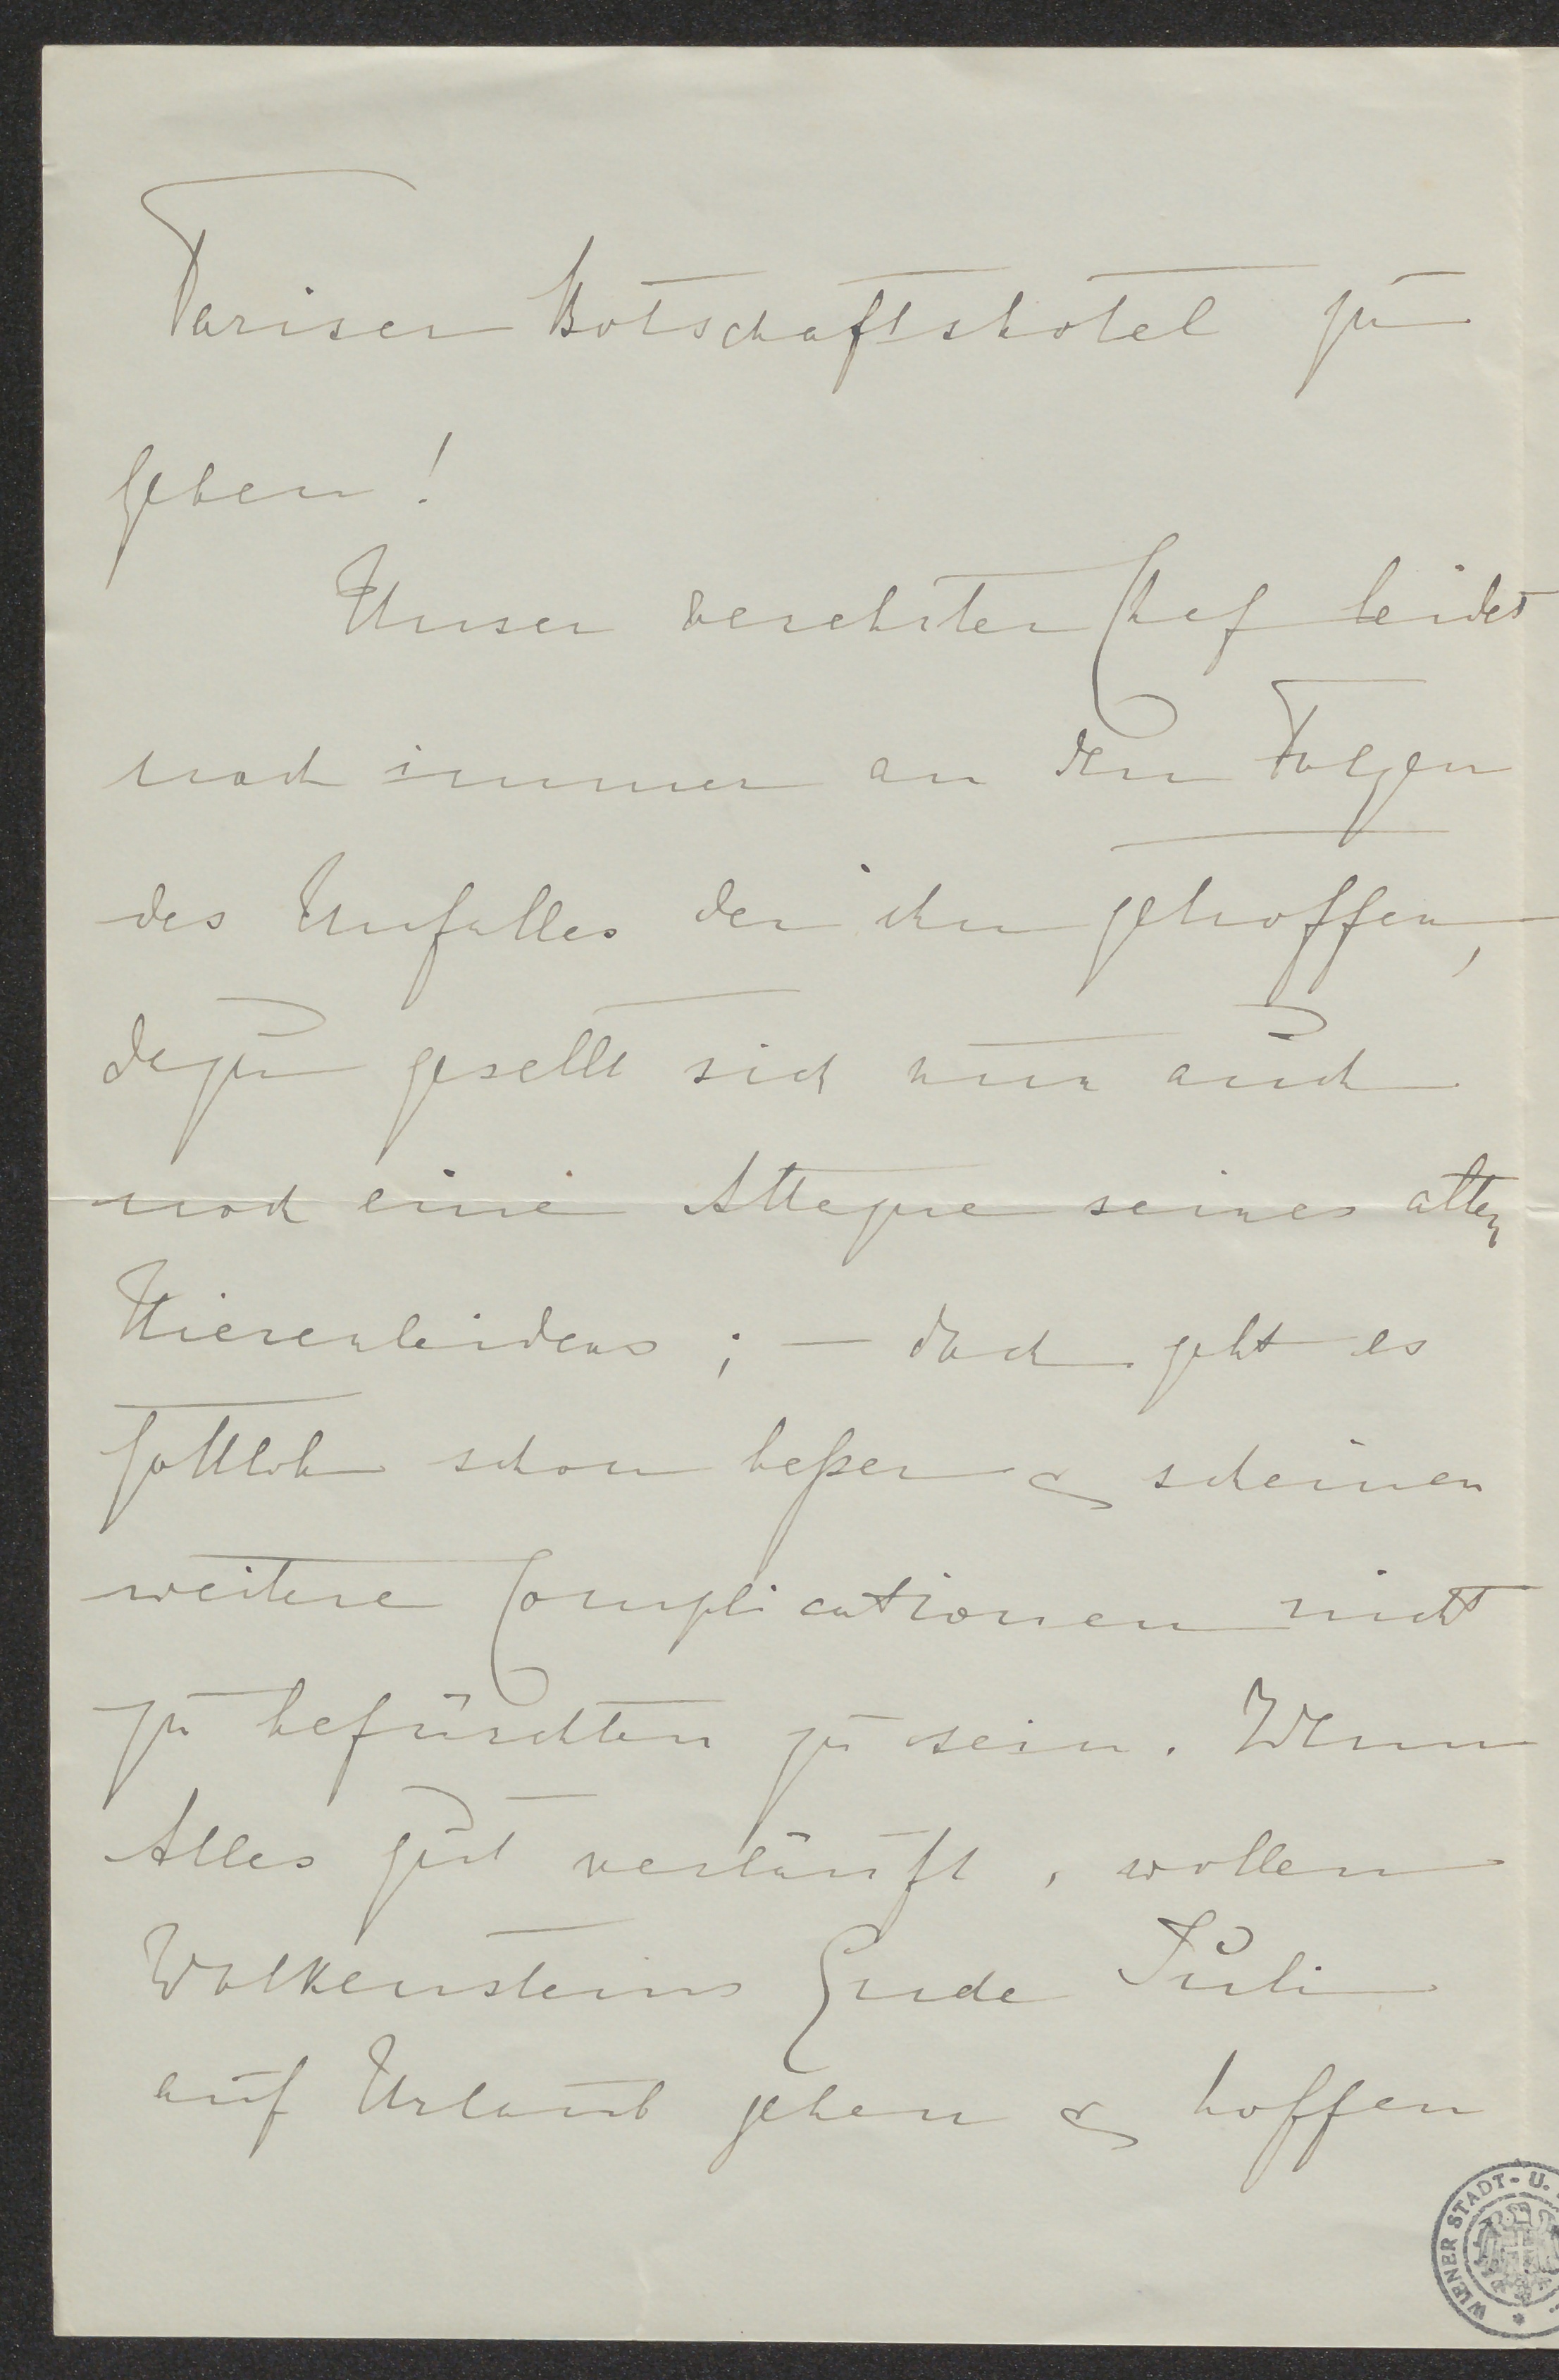 Pariser Botschaftshotel zu
gehen!
Unser verehrter Chef leidet
noch immer an den Folgen
des Unfalles der ihn getroffen,
dazu gesellt sich nun auch
noch eine Attaque seines alten
Nierenleidens; — doch geht es
gottlob schon beßer & scheinen
weitere Complicationen nicht
zu befürchten zu sein. Wenn
Alles gut verläuft, wollen
Wolkensteins Ende Juli
auf Urlaub gehen & hoffen
WIENER STADT- U.